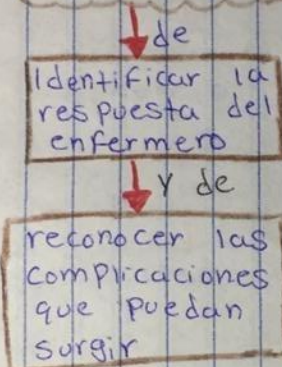 de
Identificar la
respuesta del
enfermero
Y de
reconocer las
complicaciones
que puedan
surgir